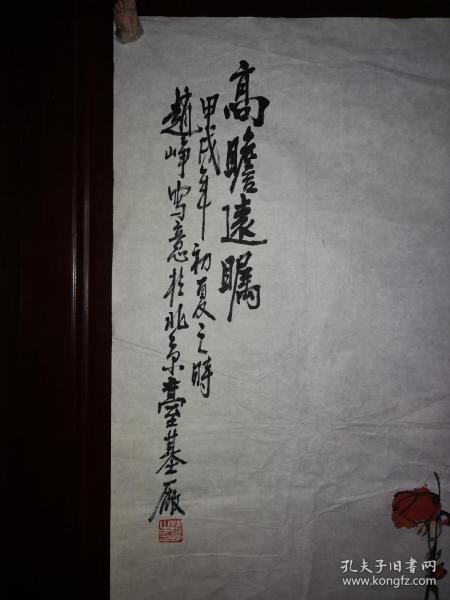 高瞻遠瞩
甲戌年初夏之時
趙峥写意於北京臺基厰
孔夫子旧书网
www.kongfz.com